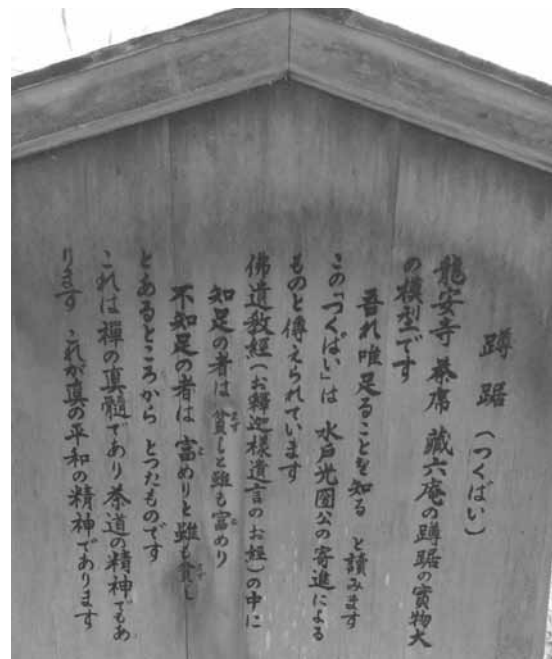 蹲踞（つくばい）
龍安寺 茶席 藏六庵の蹲踞の實物大
の模型です
吾れ唯足ることを知る と讀みます
この「つくばい」は 水戸光圀公の寄進による
ものと傳えられています
佛遺敎經（お釋迦様遺言のお經）の中に
知足の者は 貧しと雖も富めり
不知足の者は 富めりと雖も貧し
とあるところから とつたものです
これは禪の真髓であり茶道の精神でもあ
ります これが真の平和の精神であります